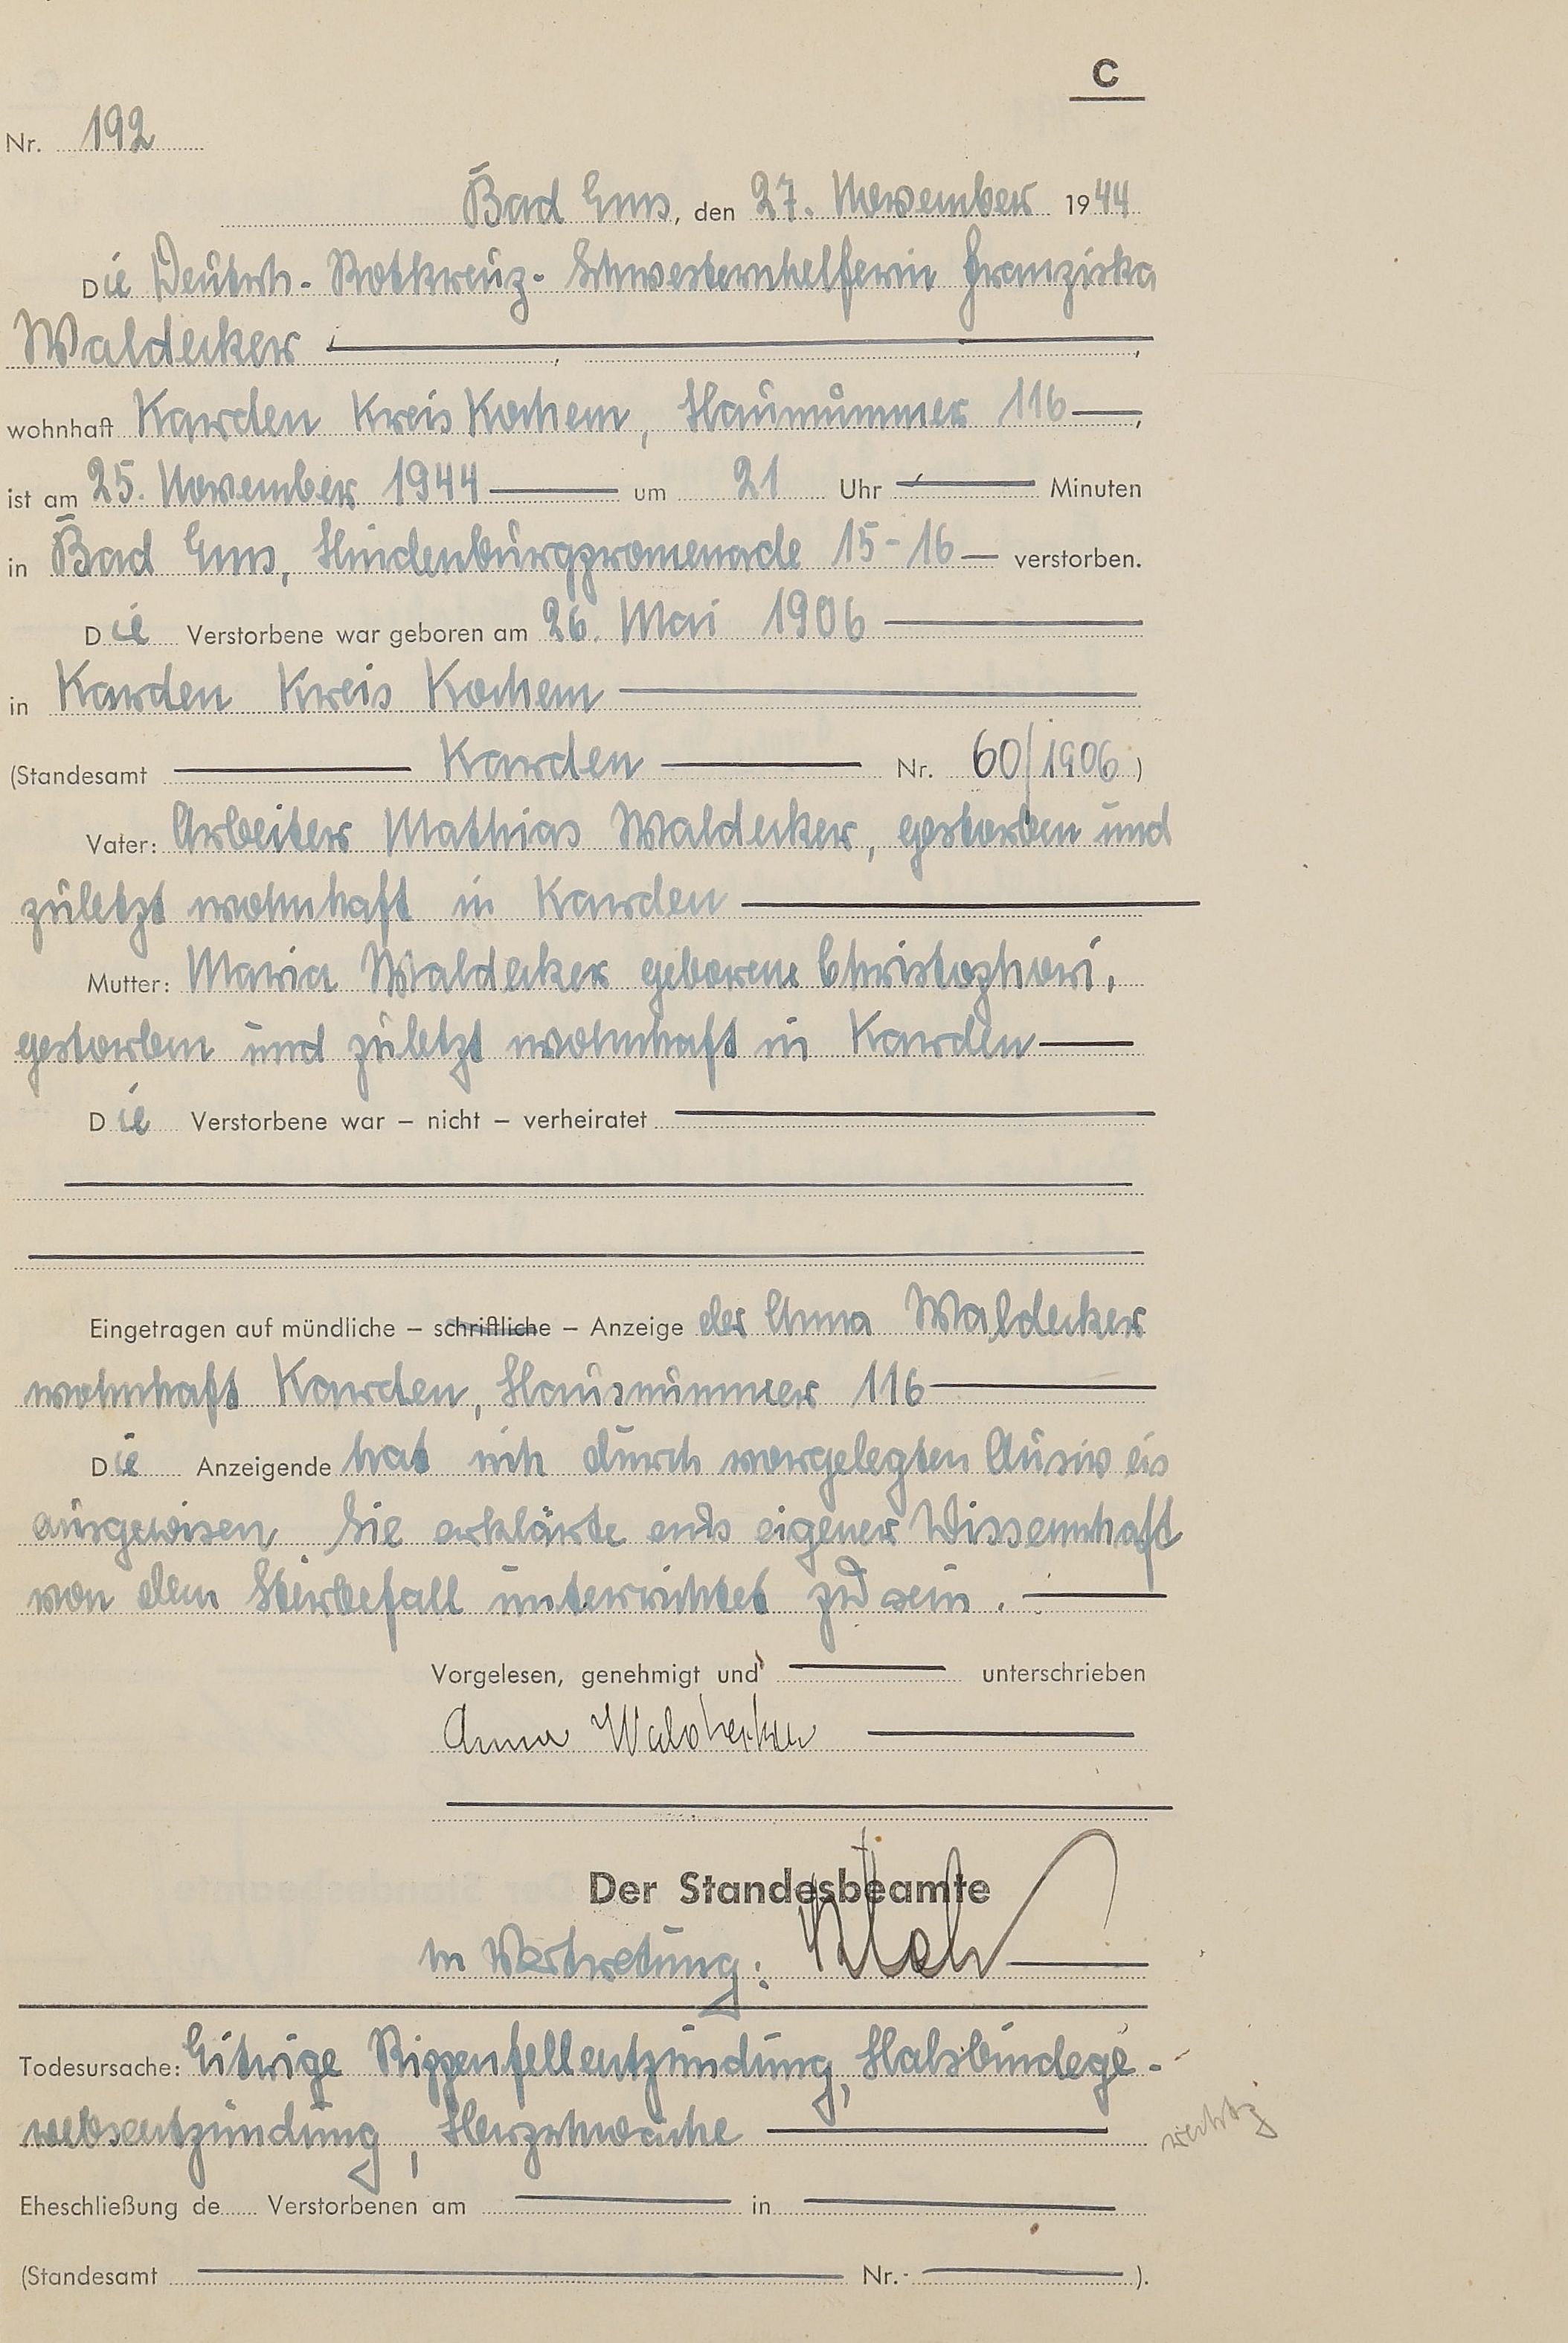 C
Nr. 192
Bad Ems, den 27. November 1944
Die Deutsch-Rotkreuz-Schwesternhelferin Franziska
Waldecker
wohnhaft Karden Kreis Kochem, Hausnummer 116,
ist am 25. November 1944 um 21 Uhr Minuten
in Bad Ems, Hindenburgpromenade 15-16 verstorben.
Die Verstorbene war geboren am 26. Mai 1906
in Karden Kreis Kochem
(Standesamt Karden Nr. 60/1906)
Vater: Arbeiter Mathias Waldecker, gestorben und
zuletzt wohnhaft in Karden
Mutter: Maria Waldecker geborene Christophori,
gestorben und zuletzt wohnhaft in Karden
Die Verstorbene war – nicht – verheiratet
Eingetragen auf mündliche – schriftliche – Anzeige der Anna Waldecker
wohnhaft Karden, Hausnummer 116
Die Anzeigende hat sich durch vorgelegten Ausweis
ausgewisen Sie erklärte aus eigener Wissenschaft
von dem Sterbefall unterrichtet zu sein.
Vorgelesen, genehmigt und unterschrieben
Anna Waldecker
Der Standesbeamte
In Vertretung:
Todesursache: Eitrige Rippenfellentzündung, Halsbindege-
websentzündung, Herzschwäche
Eheschließung de Verstorbenen am in
(Standesamt Nr. ).